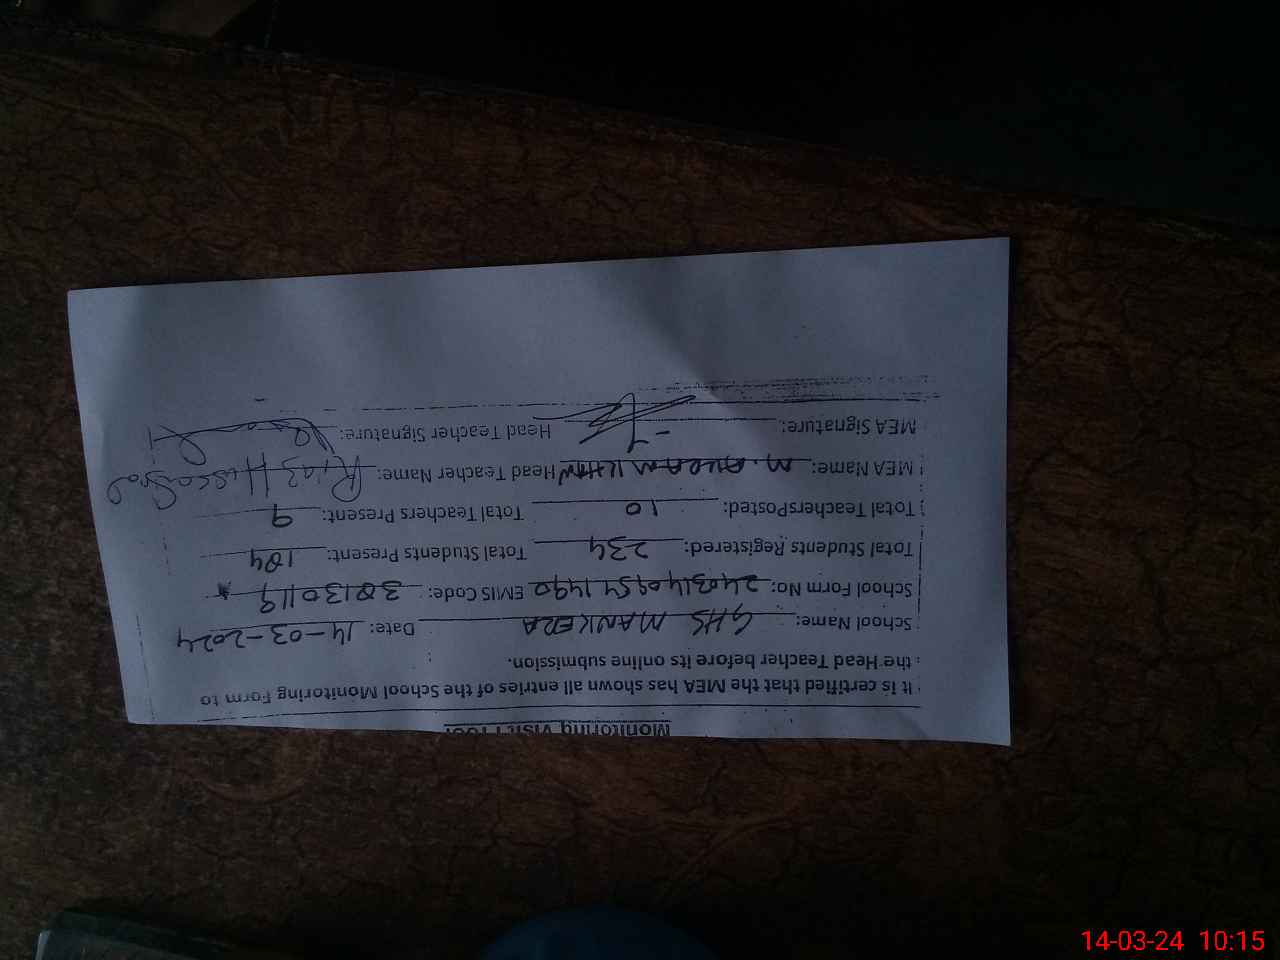 Monitoring Visit Proof
It is certified that the MEA has shown all entries of the School Monitoring Form to
the Head Teacher before its online submission.
School Name: GHS MANKERA Date: 14-03-2024
School Form No: EMIS Code: 38130119
Total Students Registered: 234 Total Students Present: 184
Total TeachersPosted: 10 Total Teachers Present: 9
MEA Name: M. KHAN Head Teacher Name: Riaz
MEA Signature: Head Teacher Signature:
14-03-24 10:15